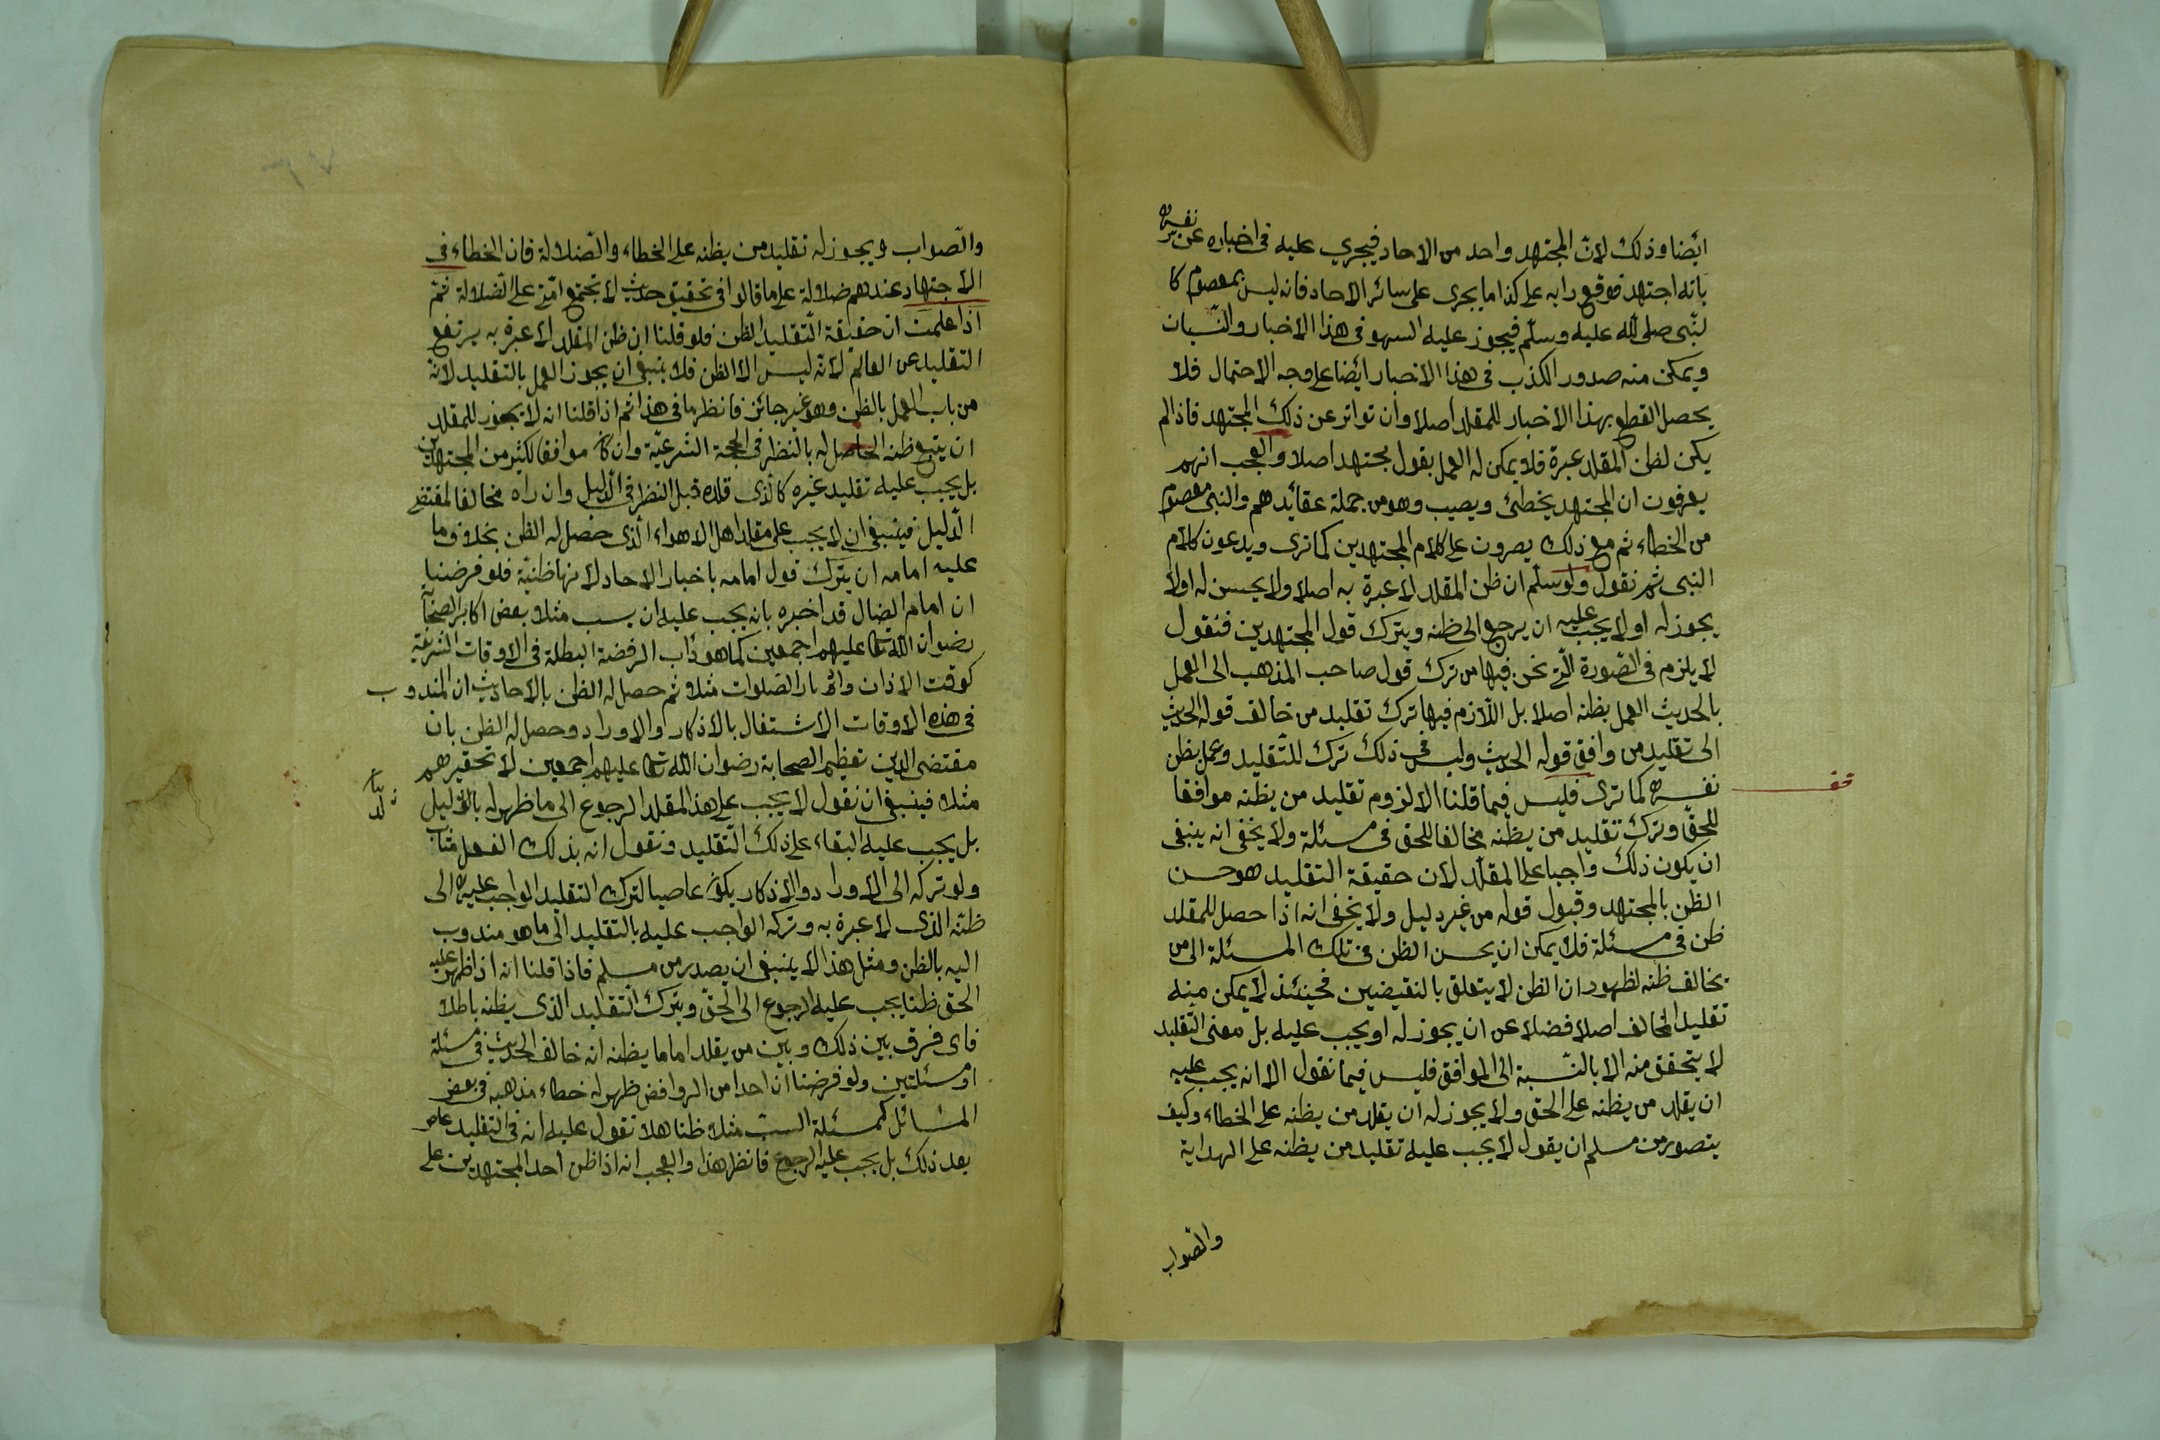 ايضا وذلك لان المجتهد واحد من الاحاد فيجري عليه في اخباره عن نفسه
بانه اجتهد فوقع رايه على كذا ما يجرى على سائر الاحاد فانه ليس بمعصوم كا
لنبى صلى الله عليه وسلم فيجوز عليه السهو فى هذا الاخبار والنسيان
ويمكن منه صدور الكذب فى هذا الاخبار ايضا على وجه الاحتمال فلا
يحصل القطع بهذا الاخبار للمقلد اصلا وان تواتر عن ذلك المجتهد فاذا لم
يكن لظن المقلد عبرة فلا يمكن له العمل بقول مجتهد اصلا والعجب انهم
يعرفون ان المجتهد يخطئ ويصيب وهو من جملة عقائدهم والنبى معصوم
من الخطاء ثم مع ذلك يصرون على كلام المجتهدين كما ترى ويدعون كلام
النبى ثم نقول ولو سلم ان ظن المقلد لا عبرة به اصلا ولا يحسن له اولا
يجوز له اولا يجب عليه ان يرجع الى ظنه ويترك قول المجتهدين فنقول
لا يلزم فى الصورة التى نحن فيها من ترك قول صاحب المذهب الى العمل
بالحديث العمل بظنه اصلا بل اللازم فيها ترك تقليد من خالف قوله الحديث
الى تقليد من وافق قوله الحديث وليس فى ذلك ترك للتقليد وعمل بظن
نفسه كما ترى فليس فيما قلنا الا لزوم تقليد من يظنه موافقا
للحق وترك تقليد من يظنه مخالفا للحق فى مسئلة ولا يخفى انه ينبغى
ان يكون ذلك واجبا على المقلد لان حقيقة التقليد هو حسن
الظن بالمجتهد وقبول قوله من غير دليل ولا يخفى انه اذا حصل للمقلد
ظن فى مسئلة فلا يمكن ان يحسن الظن فى تلك المسئلة الى من
يخالف ظنه لظهور ان الظن لا يتعلق بالنقيضين فحينئذ لا يمكن منه
تقليد المخالف اصلا فضلا عن ان يجوز له او يجب عليه بل معنى التقليد
لا يتحقق منه الا بالنسبة الى الموافق فليس فيما نقول الا انه يجب عليه
ان يقلد من يظنه على الحق ولا يجوز له ان يقلد من يظنه على الخطاء وكيف
يتصور من مسلم ان يقول لا يجب عليه تقليد من يظنه على الهداية
والصواب
قف
والصواب ويجوز له تقليد من يظنه على الخطاء والضلالة فان الخطاء فى
الاجتهاد عندهم ضلالة على ما قالوا فى تحقيق حديث لا تجتمع امتى على الضلالة ثم
اذا علمت ان حقيقة التقليد الظن فلو قلنا ان ظن المقلد لا عبرة به يرتفع
التقليد عن العالم لانه ليس الا الظن فلا ينبغى ان يجوز العمل بالتقليد لانه
من باب العمل بالظن وهو غير جائز فانظر ما فى هذا ثم اذا قلنا انه لا يجوز للمقلد
ان يتبع ظنه الحاصل له بالنظر فى الحجة الشرعية وان كان موافقا لكثير من المجتهدين
بل يجب عليه تقليد غيره كالذى قلده قبل النظر فى الدليل وان راه مخالفا لمقتضى
الدليل فينبغى ان لا يجب على مقلد اهل الاهواء الذى حصل له الظن بخلاف ما
عليه امامه ان يترك قول امامه باخبار الاحاد لانها ظنية فلو فرضنا
ان امام الضال قد اخبره بانه يجب عليه ان يسب مثلا بعض اكابر الصحابة
رضوان الله تعا عليهم اجمعين كما هو داب الرفضة البطلة فى الاوقات الشرعية
كوقت الاذان وادبار الصلوات مثلا ثم حصل له الظن بالاحاديث ان المندوب
فى هذه الاوقات الاشتغال بالاذكار والاوراد وحصل له الظن بان
مقتضى الدين تعظيم الصحابة رضوان الله تعا عليهم اجمعين لا تحقيرهم
مثلا فينبغى ان نقول لا يجب على هذا المقلد الرجوع الى ما ظهر له بالدليل
بل يجب عليه البقاء على ذلك التقليد ونقول انه بذلك الفعل مثاب
ولو تركه الى الاوراد والاذكار يكون عاصيا لترك التقليد الواجب عليه الى
ظنه الذى لا عبرة به وتركه الواجب عليه بالتقليد الى ما هو مندوب
اليه بالظن ومثل هذا لا ينبغى ان يصدر من مسلم فاذا قلنا انه اذا ظهر عليه
الحق ظنا يجب عليه الرجوع الى الحق ويترك التقليد الذى يظنه باطلا
فاى فرق بين ذلك وبين من يقلد اماما يظنه انه خالف الحديث فى مسئلة
او مسئلتين ولو فرضنا ان احدا من الروافض ظهر له خطاء مذهبه فى بعض
المسائل كمسئلة السب مثلا ظنا هلا تقول عليه انه فى التقليد عاص
بعد ذلك بل يجب عليه الرجوع فانظر هذا والعجب انه اذا ظن احد المجتهدين على